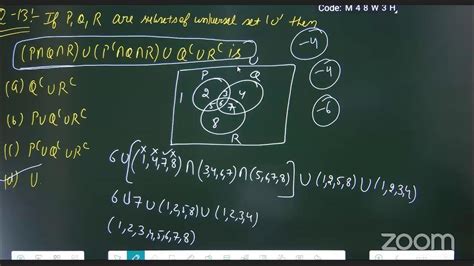 Code: M 4 8 W 3 H
Q-13:- If P, Q, R are subsets of universal set 'U' then
(P∩Q∩R)∪(Pᶜ∩Q∩R)∪Qᶜ∪Rᶜ is
-4
(a) Qᶜ∪Rᶜ
P Q
1 2 3 4
-4
(b) P∪Qᶜ∪Rᶜ
5 6 7
-6
8
R
(c) Pᶜ∪Qᶜ∪Rᶜ
6∪[(1,4,7,8)∩(3,4,6,7)∩(5,6,7,8)]∪(1,2,5,8)∪(1,2,3,4)
(d) U
6∪7∪(1,2,5,8)∪(1,2,3,4)
(1,2,3,4,5,6,7,8)
zoom